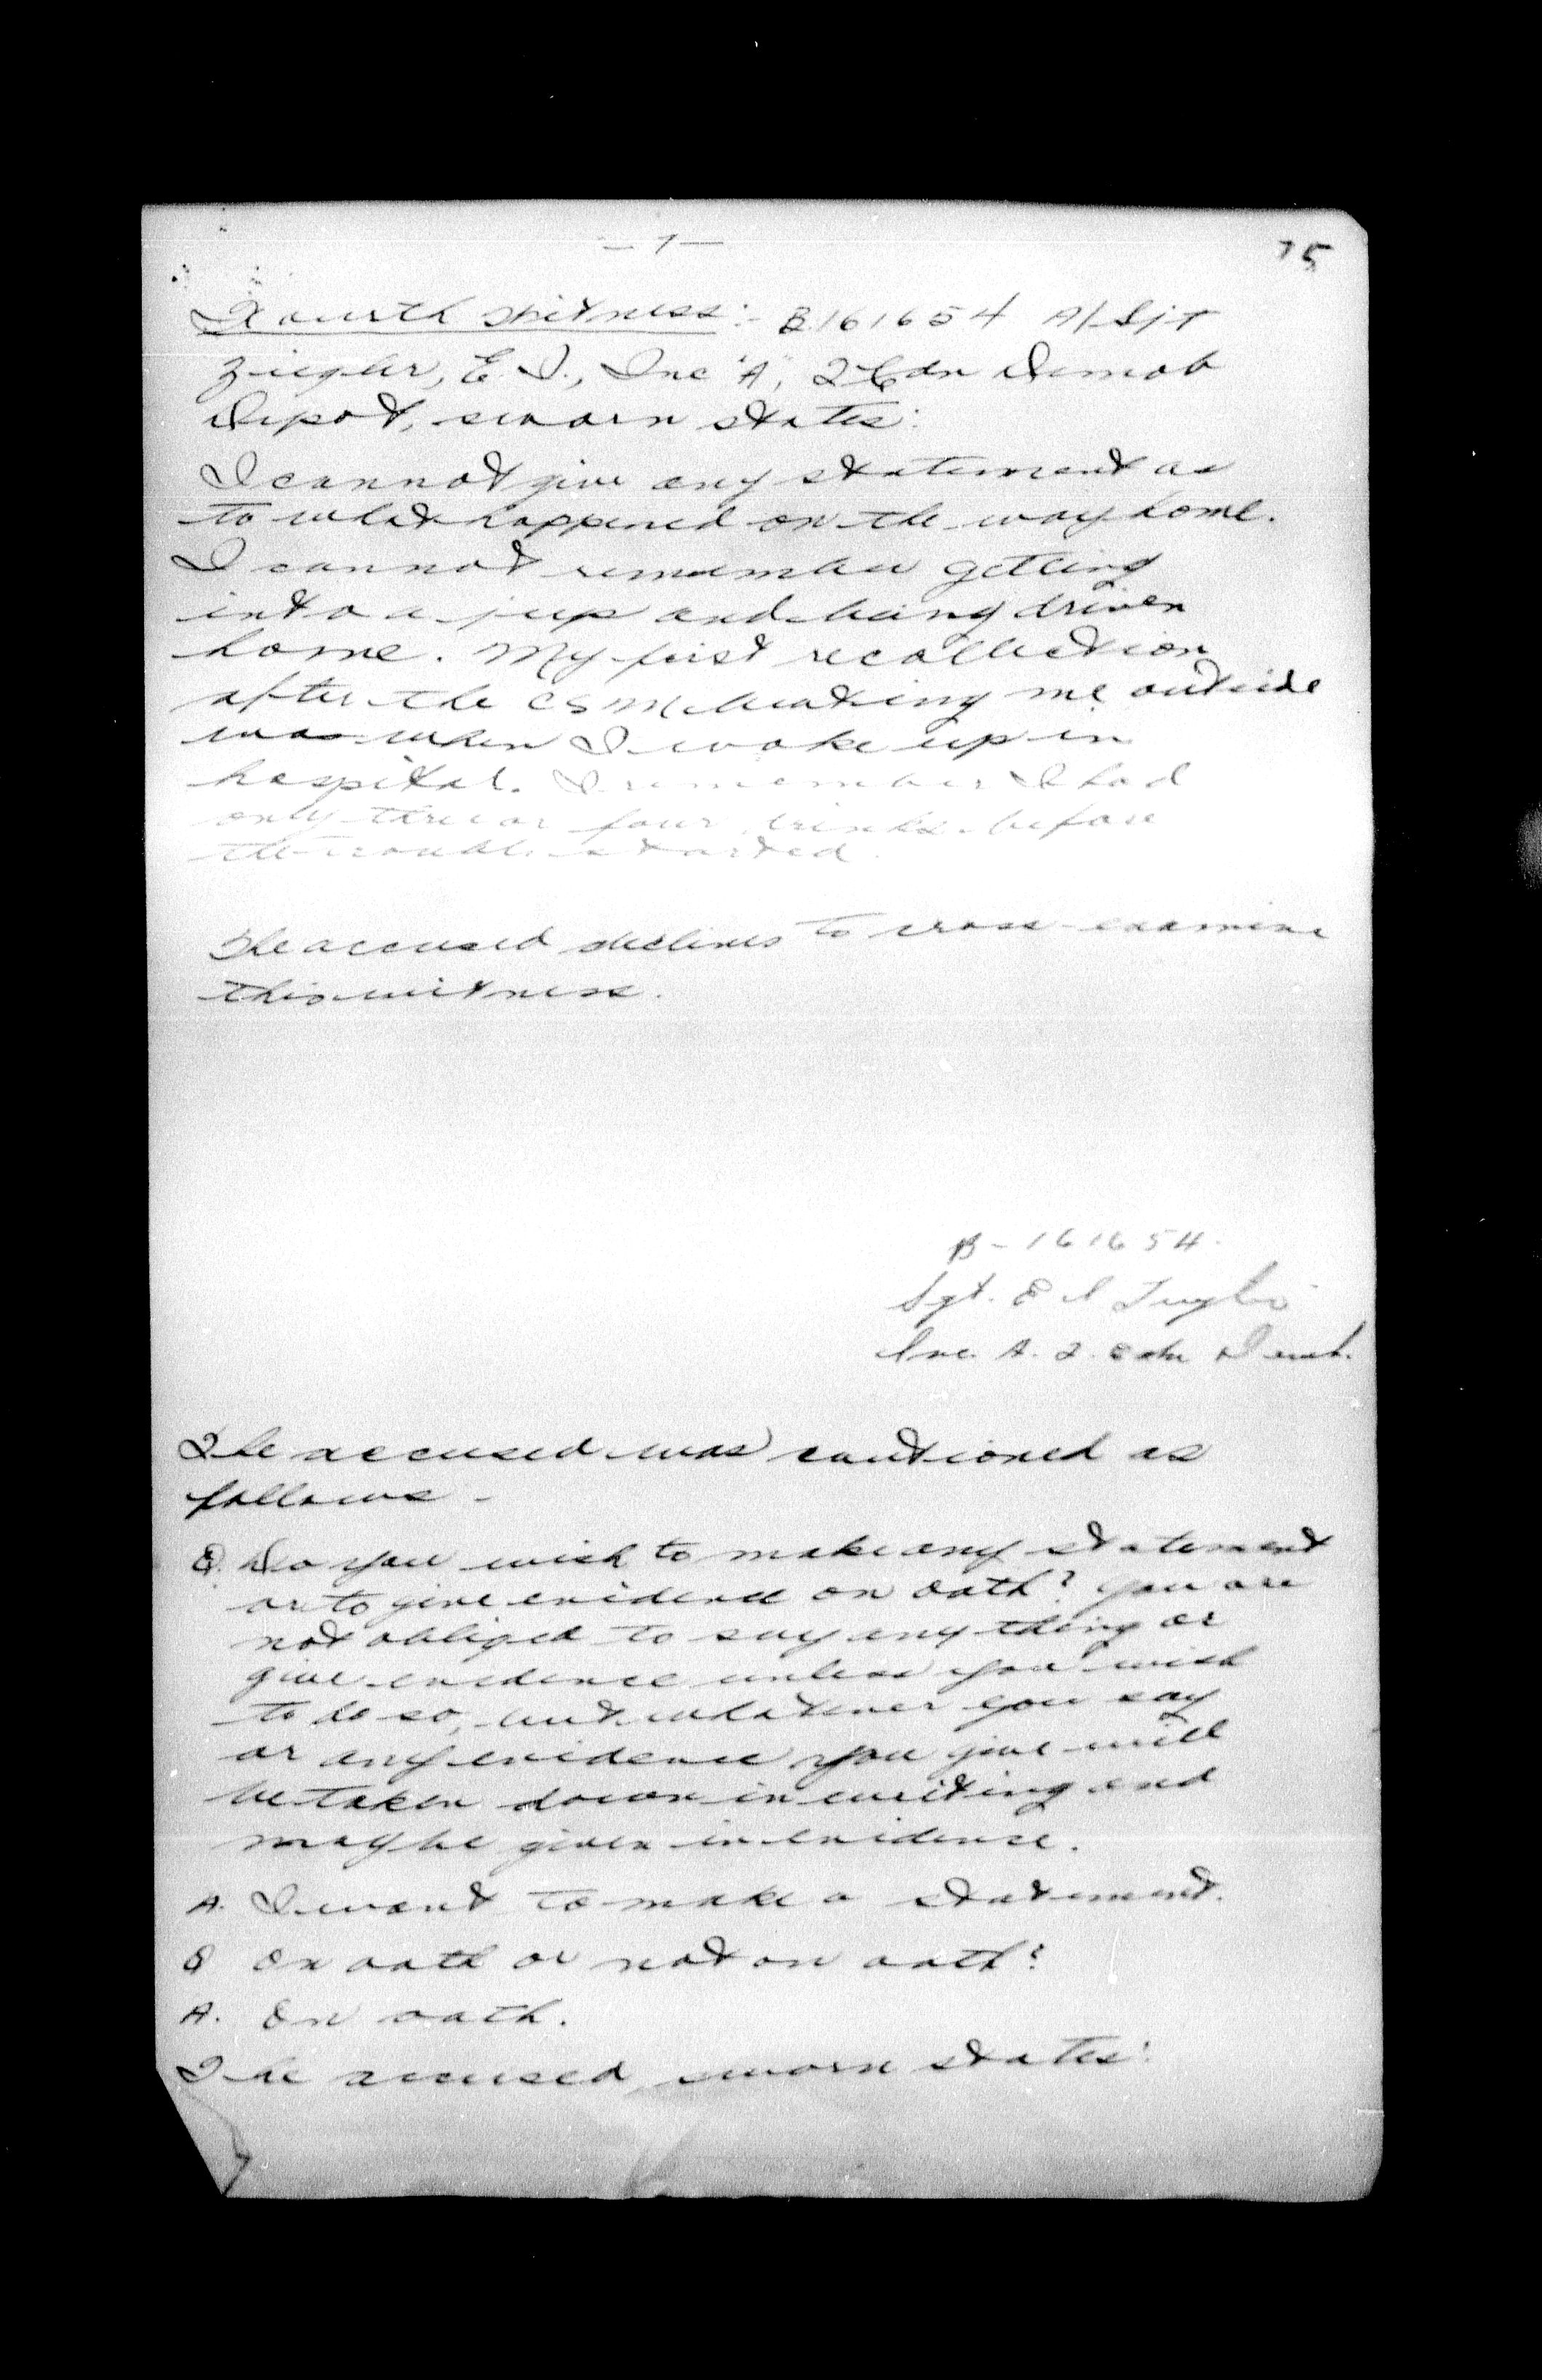 — 7 —
75
Fourth Witness:- B.161654 A/Sjt
Ziegler, E. I., Inc "A", 2 Cdn Demob
Depot, sworn states:
I cannot give any statement as
to what happened on the way home.
I cannot remember getting
into a jeep and being driven
home. My first recollection
after the CSM beating me outside
was when I woke up in
hospital. I remember I had
only three or four drinks before
the trouble started.
The accused declines to cross-examine
this witness.
B-161654.
Sgt. E I Ziegler
Inc. A. 2. Cdn Demob.
The accused was cautioned as
follows -
Q. Do you wish to make any statement
or to give evidence on oath? You are
not obliged to say anything or
give evidence unless you wish
to do so, but whatever you say
or any evidence you give will
be taken down in writing and
may be given in evidence.
A. I want to make a statement.
Q On oath or not on oath?
A. On oath.
The accused, sworn states: